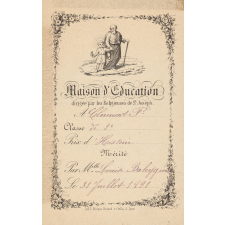 Maison d'Education
dirigée par les Religieuses de St Joseph
A Clermont Fd
Classe de 1e
Prix d'Histoire
Mérité
Par Melle Louise
Le 31 Juillet 1891